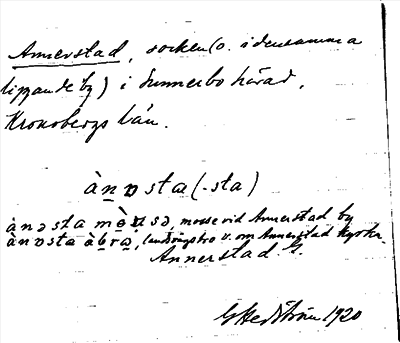 Annerstad, socken (o. i densamma
liggande by) i Sunnerbo härad,
Kronobergs län.
ànɒsta (-sta)
ànɔsta mò̤sə, mosse vid Annerstad by
ànɒsta àbrə, landsvägsbro v. om Annerstad kyrka.
Annerstad G.
G Hedström 1920